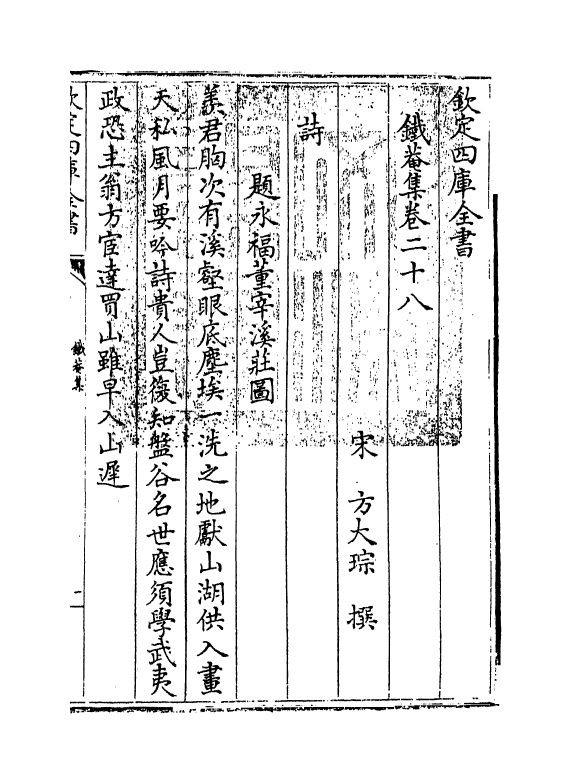 欽定四庫全書
鐵菴集卷二十八
宋　方大琮　撰
詩
題永福董宰溪莊圖
羨君胸次有溪壑眼底塵埃一洗之地獻山湖供入畫
天私風月要吟詩貴人豈復知盤谷名世應須學武夷
政恐主翁方宦達買山雖早入山遲
欽定四庫全書
鐵菴集